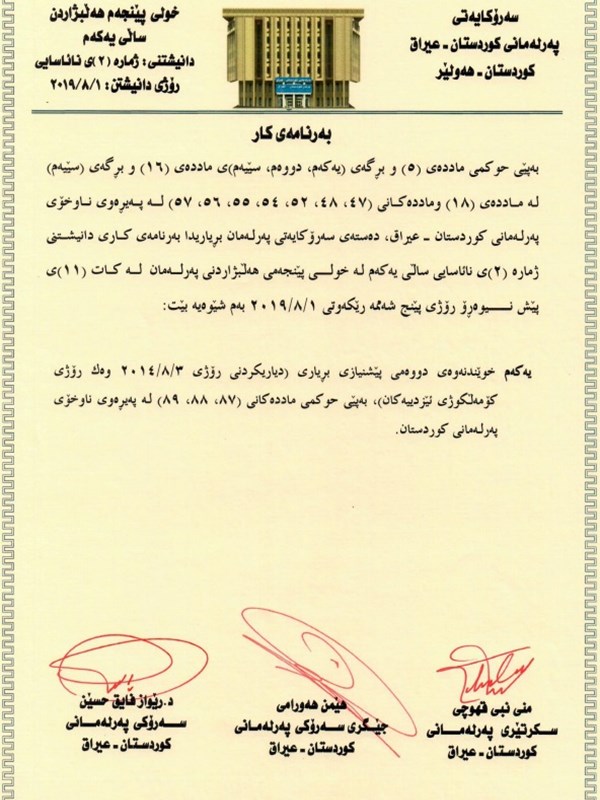 سەرۆکایەتی
پەرلەمانی کوردستان - عیراق
کوردستان - هەولێر
خولی پێنجەم هەڵبژاردن
ساڵی یەکەم
دانیشتنی: ژمارە (٢)ی نائاسایی
رۆژی دانیشتن: ٢٠١٩/٨/١
بەرنامەی کار
بەپێی حوکمی ماددەی (٥) و بڕگەی (یەکەم، دووەم، سێیەم)ی ماددەی (١٦) و بڕگەی (سێیەم)
لە ماددەی (١٨) وماددەکانی (٤٧، ٤٨، ٥٢، ٥٤، ٥٥، ٥٦، ٥٧) لە پەیڕەوی ناوخۆی
پەرلەمانی کوردستان - عیراق، دەستەی سەرۆکایەتی پەرلەمان بڕیاریدا بەرنامەی کاری دانیشتنی
ژمارە (٢)ی نائاسایی ساڵی یەکەم لە خولی پێنجەمی هەڵبژاردنی پەرلەمان لە کات (١١)ی
پێش نیوەڕۆ رۆژی پێنج شەممە رێکەوتی ٢٠١٩/٨/١ بەم شێوەیە بێت:
یەکەم خوێندنەوەی دووەمی پێشنیازی بڕیاری (دیاریکردنی رۆژی ٢٠١٤/٨/٣ وەک رۆژی
کۆمەڵکوژی ئێزدییەکان)، بەپێی حوکمی ماددەکانی (٨٧، ٨٨، ٨٩) لە پەیڕەوی ناوخۆی
پەرلەمانی کوردستان.
منی نبی قهوچی
سکرتێری پەرلەمانی
کوردستان - عیراق
هێمن هەورامی
جێگری سەرۆکی پەرلەمانی
کوردستان - عیراق
د.رێواز فایق حسێن
سەرۆکی پەرلەمانی
کوردستان - عیراق